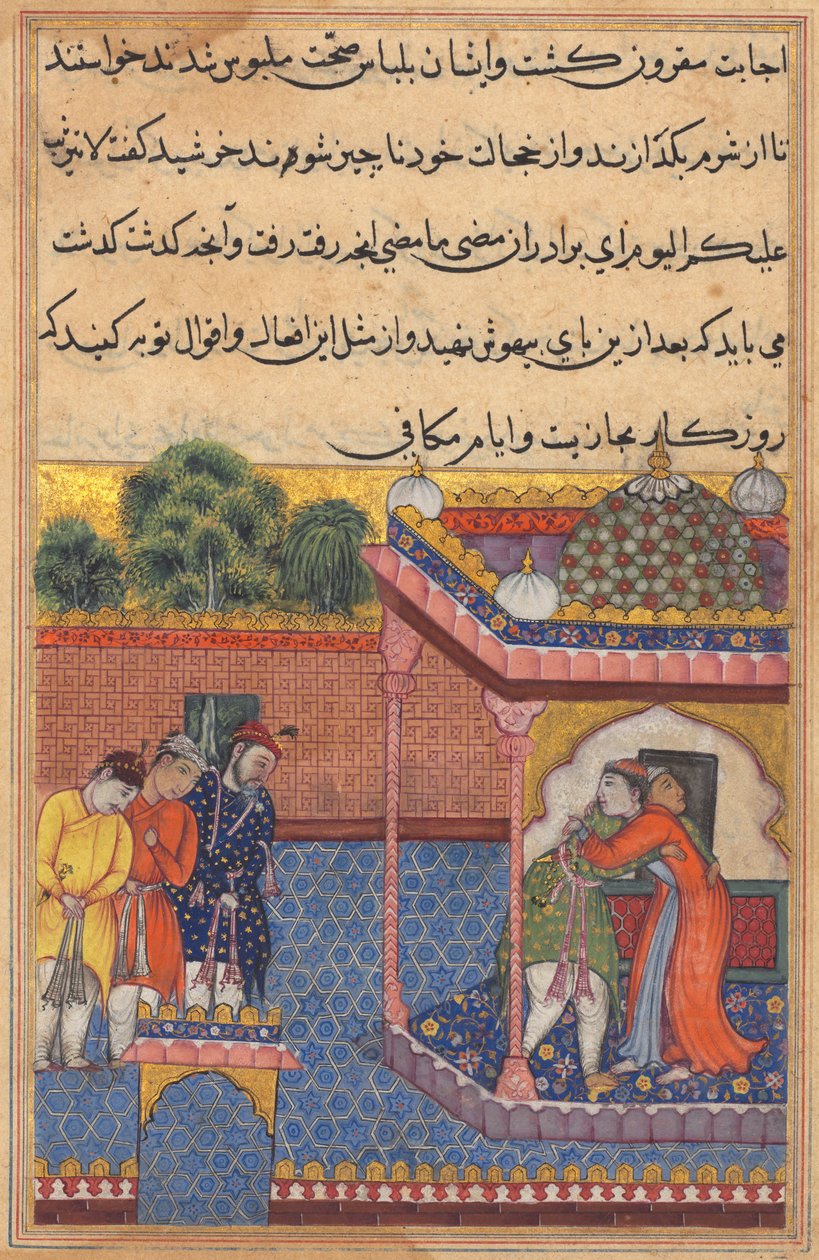 اجابت مقرون كشت و ايشان بلباس صحّت ملبوس شدند خواستند
تا از شرم بكدازند و از خجالت خود ناچيز شوند خرشيد كفت لا تثريب
عليكم اليوم اي برادران مضى ما مضي انجه رفت رفت و آنجه كدشت كدشت
مي بايد كه بعد ازين باي بيهوش نهيد و از مثل اين افعال و اقوال توبه كنيد كه
روزكار مجازيت و ايام مكافي